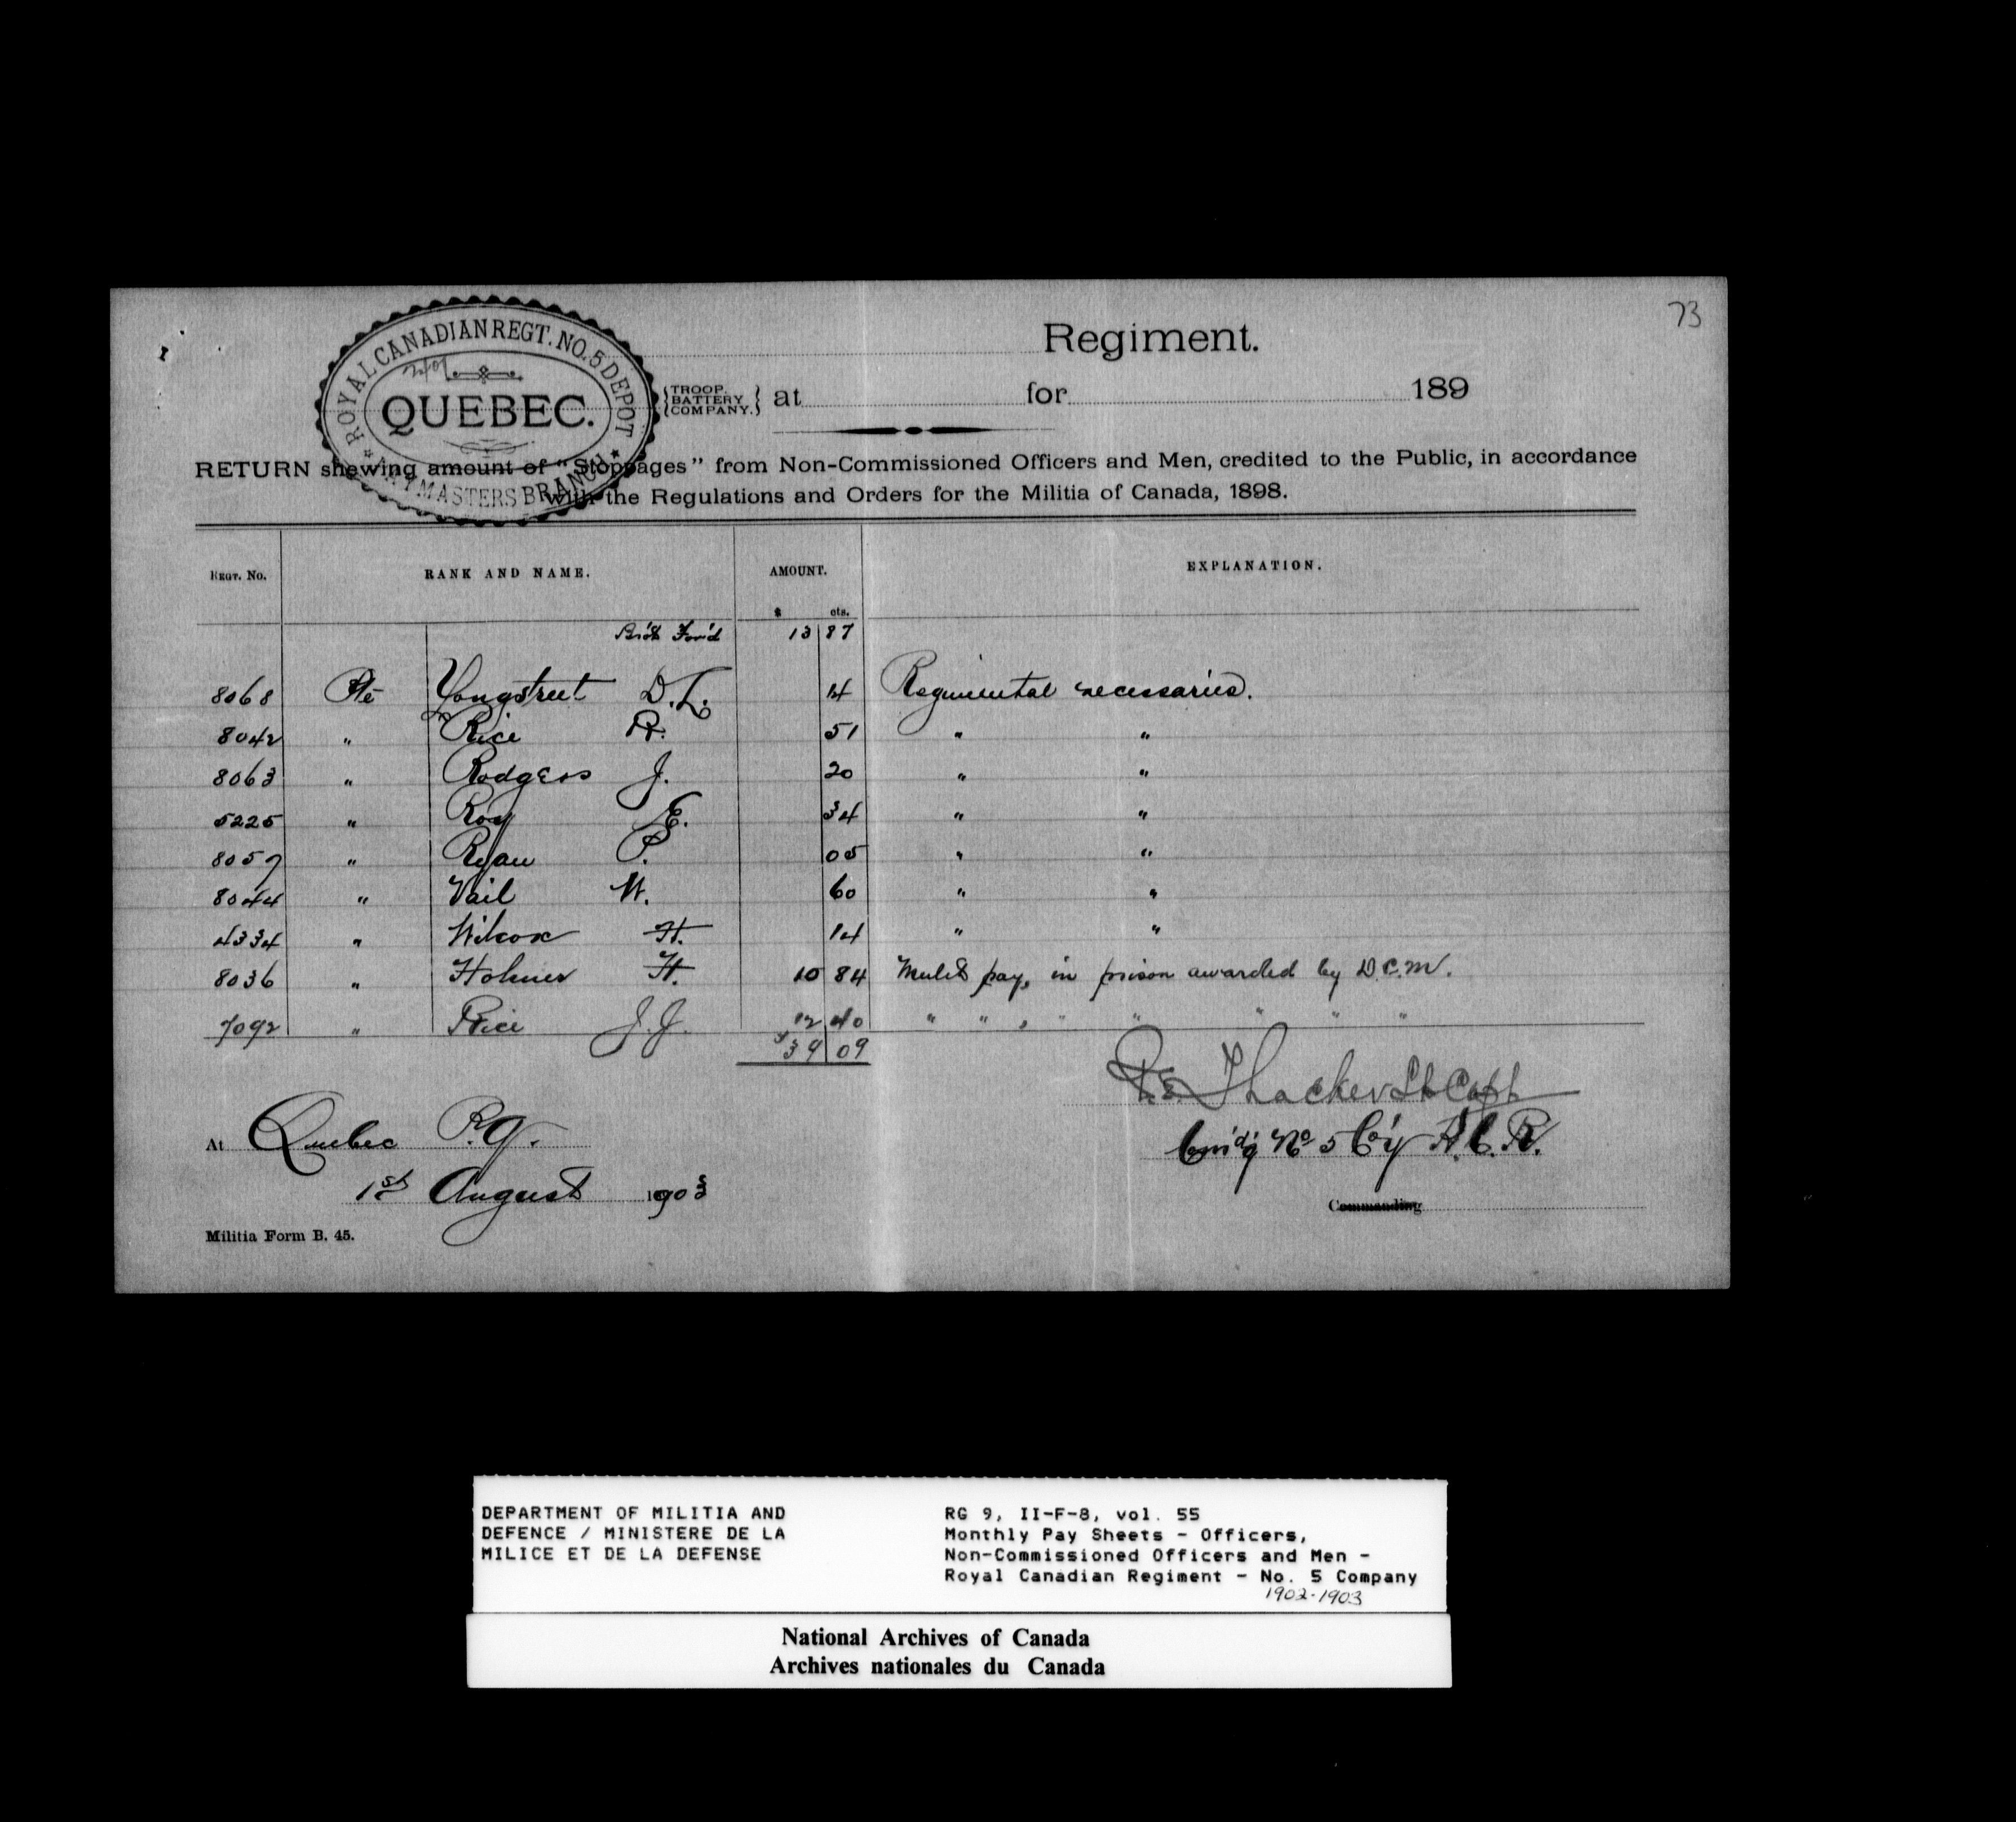 73
ROYAL CANADIAN REGT. NO. 5 DEPOT
QUEBEC.
PAYMASTERS BRANCH
Regiment.
{TROOP. BATTERY COMPANY.} at for 189
RETURN shewing amount of "Stoppages" from Non-Commissioned Officers and Men, credited to the Public, in accordance
with the Regulations and Orders for the Militia of Canada, 1898.
REGT. No. RANK AND NAME. AMOUNT. EXPLANATION.
$ cts.
Br't For'd 13 87
8068 Pte Yongstreet D.L. 14 Regimental necessaries.
8042 " Rice R. 51 " "
8063 " Rodgers J. 20 " "
5225 " Roy E. 34 " "
8057 " Ryan P. 05 " "
8044 " Vail W. 60 " "
4334 " Wilcox H. 14 " "
8036 " Holmes H. 10 84 Mulct pay, in prison awarded by D.C.M.
7092 " Price J.J. 12 40 " " , " " " " "
$39 09
Thacker Lt Capt
At Quebec P.Q.
Cmd'g No 5 Co'y R.C.R.
1st August 1903
Commanding
Militia Form B. 45.
DEPARTMENT OF MILITIA AND
DEFENCE / MINISTERE DE LA
MILICE ET DE LA DEFENSE
RG 9, II-F-8, vol. 55
Monthly Pay Sheets - Officers,
Non-Commissioned Officers and Men -
Royal Canadian Regiment - No. 5 Company
1902-1903
National Archives of Canada
Archives nationales du Canada